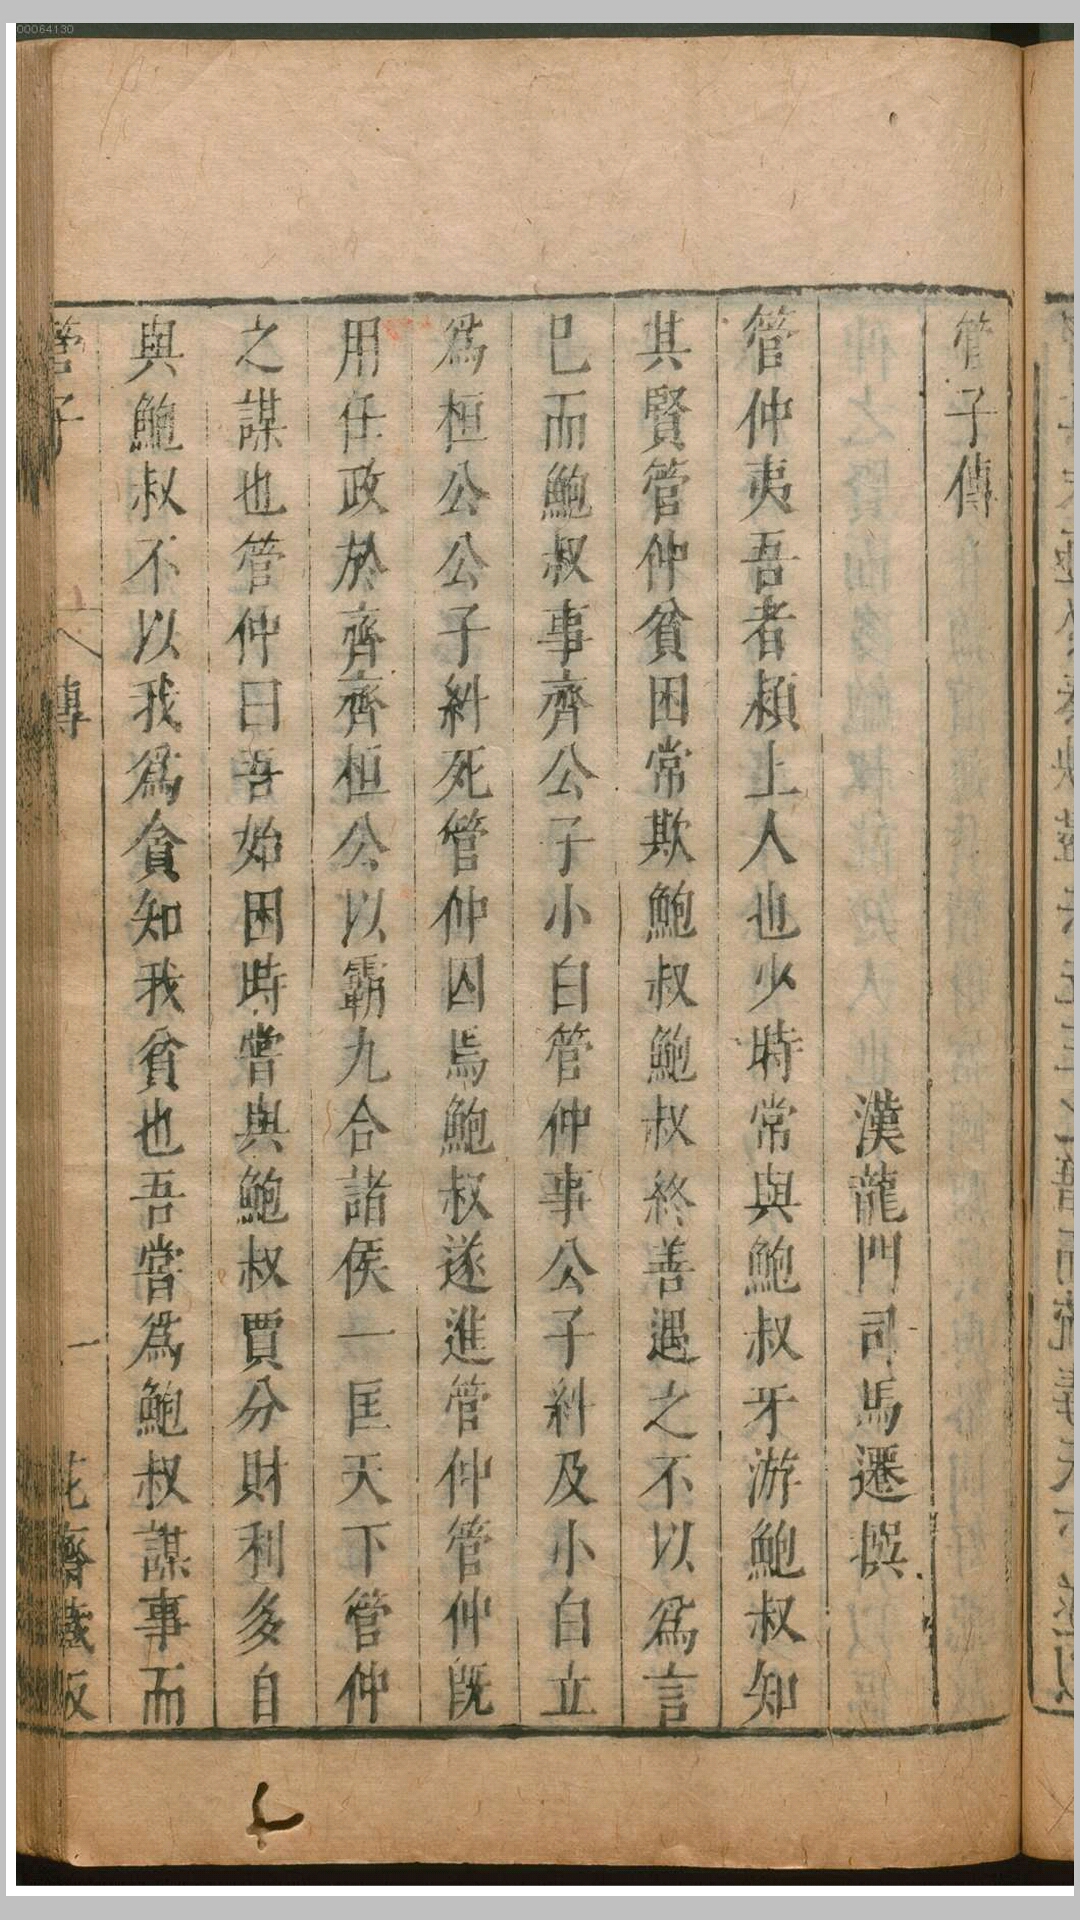 00064130
管子傳
漢龍門司馬遷撰
管仲夷吾者潁上人也少時常與鮑叔牙游鮑叔知
其賢管仲貧困常欺鮑叔鮑叔終善遇之不以為言
已而鮑叔事齊公子小白管仲事公子糾及小白立
為桓公公子糾死管仲囚焉鮑叔遂進管仲管仲既
用任政於齊齊桓公以霸九合諸侯一匡天下管仲
之謀也管仲曰吾始困時嘗與鮑叔賈分財利多自
與鮑叔不以我為貪知我貧也吾嘗為鮑叔謀事而
管子 傳 一 花齋藏板